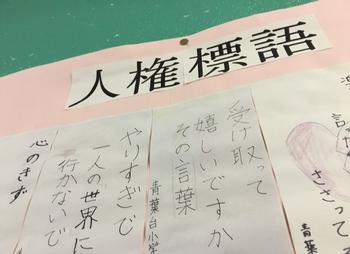 人権標語
言っ
ささって
青葉
受け取って
嬉しいですか
その言葉
青葉台小学
やりすぎで
一人の世界に
行かないで
心のきず